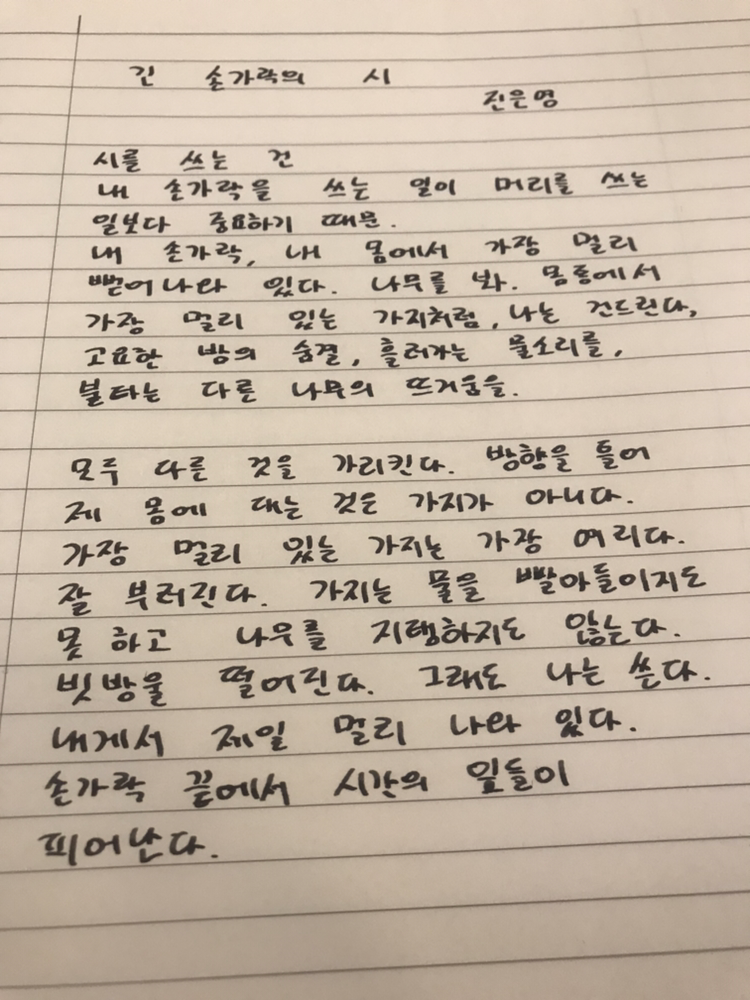 긴 손가락의 시
진은영
시를 쓰는 건
내 손가락을 쓰는 일이 머리를 쓰는
일보다 중요하기 때문.
내 손가락, 내 몸에서 가장 멀리
뻗어나와 있다. 나무를 봐. 몸통에서
가장 멀리 있는 가지처럼, 나는 건드린다,
고요한 밤의 숨결, 흘러가는 물소리를,
불타는 다른 나무의 뜨거움을.
모두 다른 것을 가리킨다. 방향을 틀어
제 몸에 대는 것은 가지가 아니다.
가장 멀리 있는 가지는 가장 여리다.
잘 부러진다. 가지는 물을 빨아들이지도
못 하고 나무를 지탱하지도 않는다.
빗방울 떨어진다. 그래도 나는 쓴다.
내게서 제일 멀리 나와 있다.
손가락 끝에서 시간의 잎들이
피어난다.